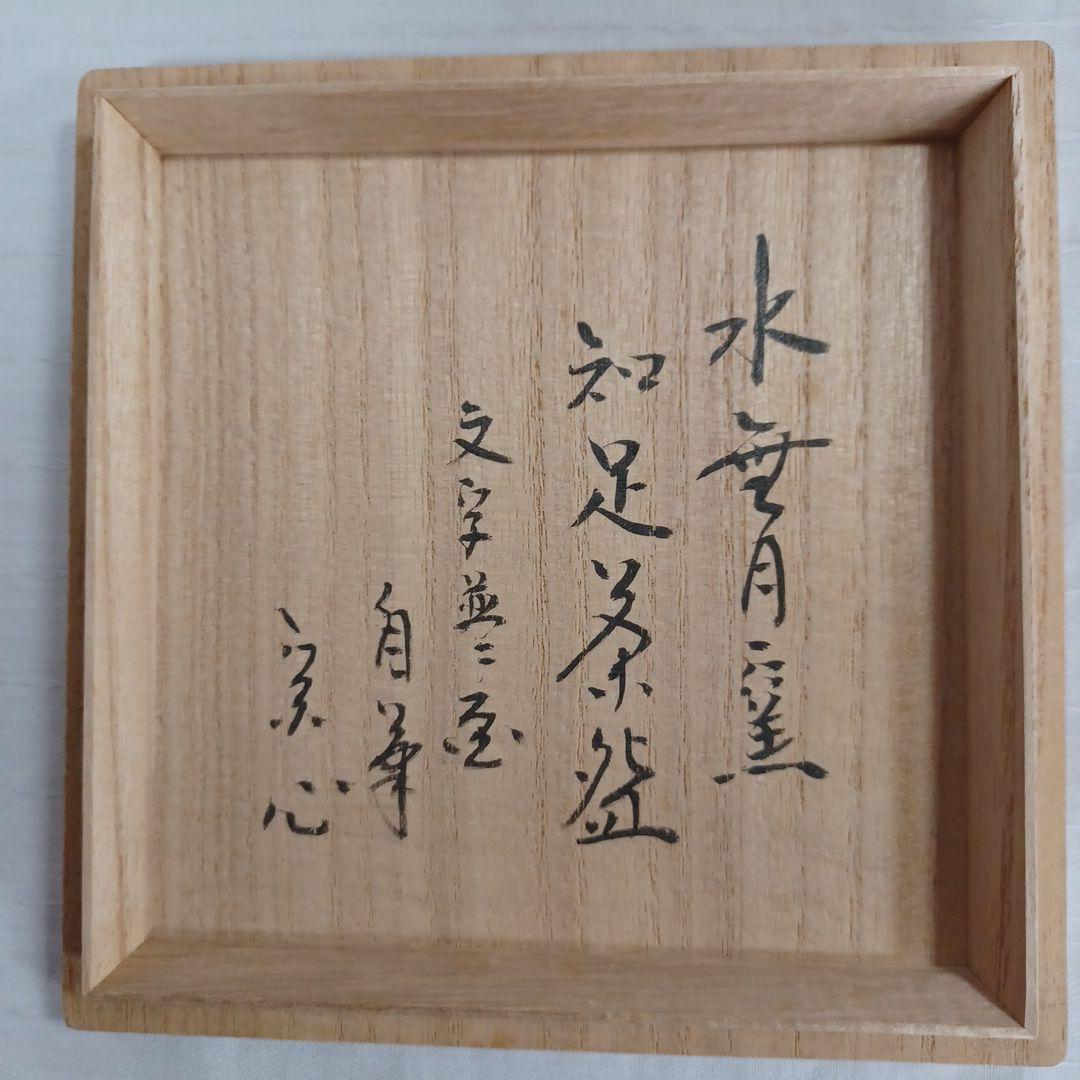 水無月窯
知足茶盌
文字並ニ画
自筆
宗心